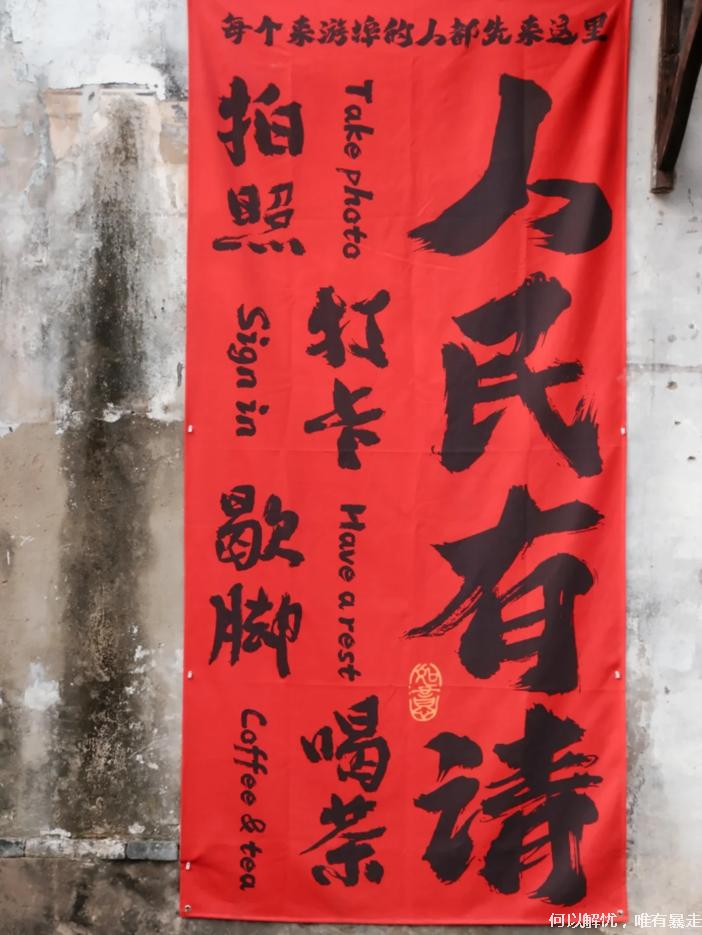 每个来游埠的人都先来这里
人民有请
拍照
Take photo
打卡
Sign in
歇脚
Have a rest
喝茶
Coffee & tea
如意
何以解忧，唯有暴走